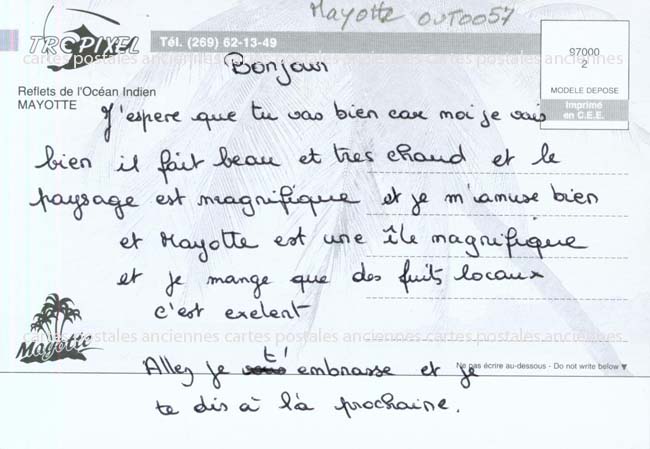 Mayotte OUT0057
TROPIXEL
Tél. (269) 62-13-49
97000
2
cartes postales anciennes cartes postales anciennes cartes postales anciennes
Bonjour
Reflets de l'Océan Indien
MAYOTTE
MODELE DEPOSE
Imprimé
en C.E.E.
J'espere que tu vas bien car moi je vais
bien il fait beau et tres chaud et le
paysage est magnifique et je m'amuse bien
et Mayotte est une île magnifique
et je mange que des fuits locaux
c'est exelent
cartes postales anciennes cartes postales anciennes cartes postales anciennes
Mayotte
Ne pas écrire au-dessous - Do not write below ▼
Allez je t'embrasse et je
te dis à là prochaine.